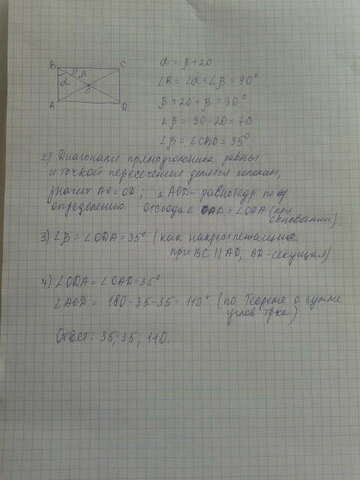 B C
α β
A D
α = β + 20
∠B = ∠α + ∠β = 90°
β + 20 + β = 90°
2β = 90 - 20 = 70
∠β = ∠OAD = 35°
2) Диагонали прямоугольника равны
и точкой пересечения делятся пополам,
значит AO = OD; △AOD - равнобедр по
определению отсюда ∠OAD = ∠ODA (при
основании)
3) ∠β = ∠ODA = 35° (как накрест лежащие
при BC || AD, BD - секущая)
4) ∠ODA = ∠OAD = 35°
∠AOD = 180 - 35 - 35 = 110° (по Теореме о сумме
углов тр-ка)
Ответ: 35; 35; 110.